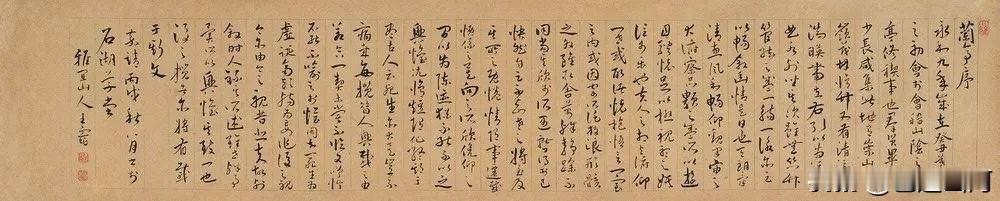 蘭亭序
永和九年歲在癸丑暮春
之初會于會稽山陰之蘭
亭脩禊事也羣賢畢至
少長咸集此地有崇山峻
嶺茂林脩竹又有清流激
湍暎帶左右引以為流觴
曲水列坐其次雖無絲竹
管絃之盛一觴一詠亦足
以暢敘幽情是日也天朗氣
清惠風和暢仰觀宇宙之
大俯察品類之盛所以遊
目騁懷足以極視聽之娛
信可樂也夫人之相與俯仰
一世或取諸懷抱悟言一室
之內或因寄所託放浪形骸
之外雖取舍萬殊靜躁不
同當其欣於所遇暫得於己
快然自足不知老之將至及
其所之既倦情隨事遷感
慨係之矣向之所欣俛仰之
間以為陳迹猶不能不以之
興懷況脩短隨化終期於
盡古人云死生亦大矣豈不
痛哉每攬昔人興感之由
若合一契未嘗不臨文嗟悼
不能喻之於懷固知一死生為
虛誕齊彭殤為妄作後之視
今亦由今之視昔悲夫故列
敘時人錄其所述雖世殊事
異所以興懷其致一也
後之攬者亦將有感
于斯文
嘉靖丙戌秋八月書于
石湖草堂
雅宜山人王寵